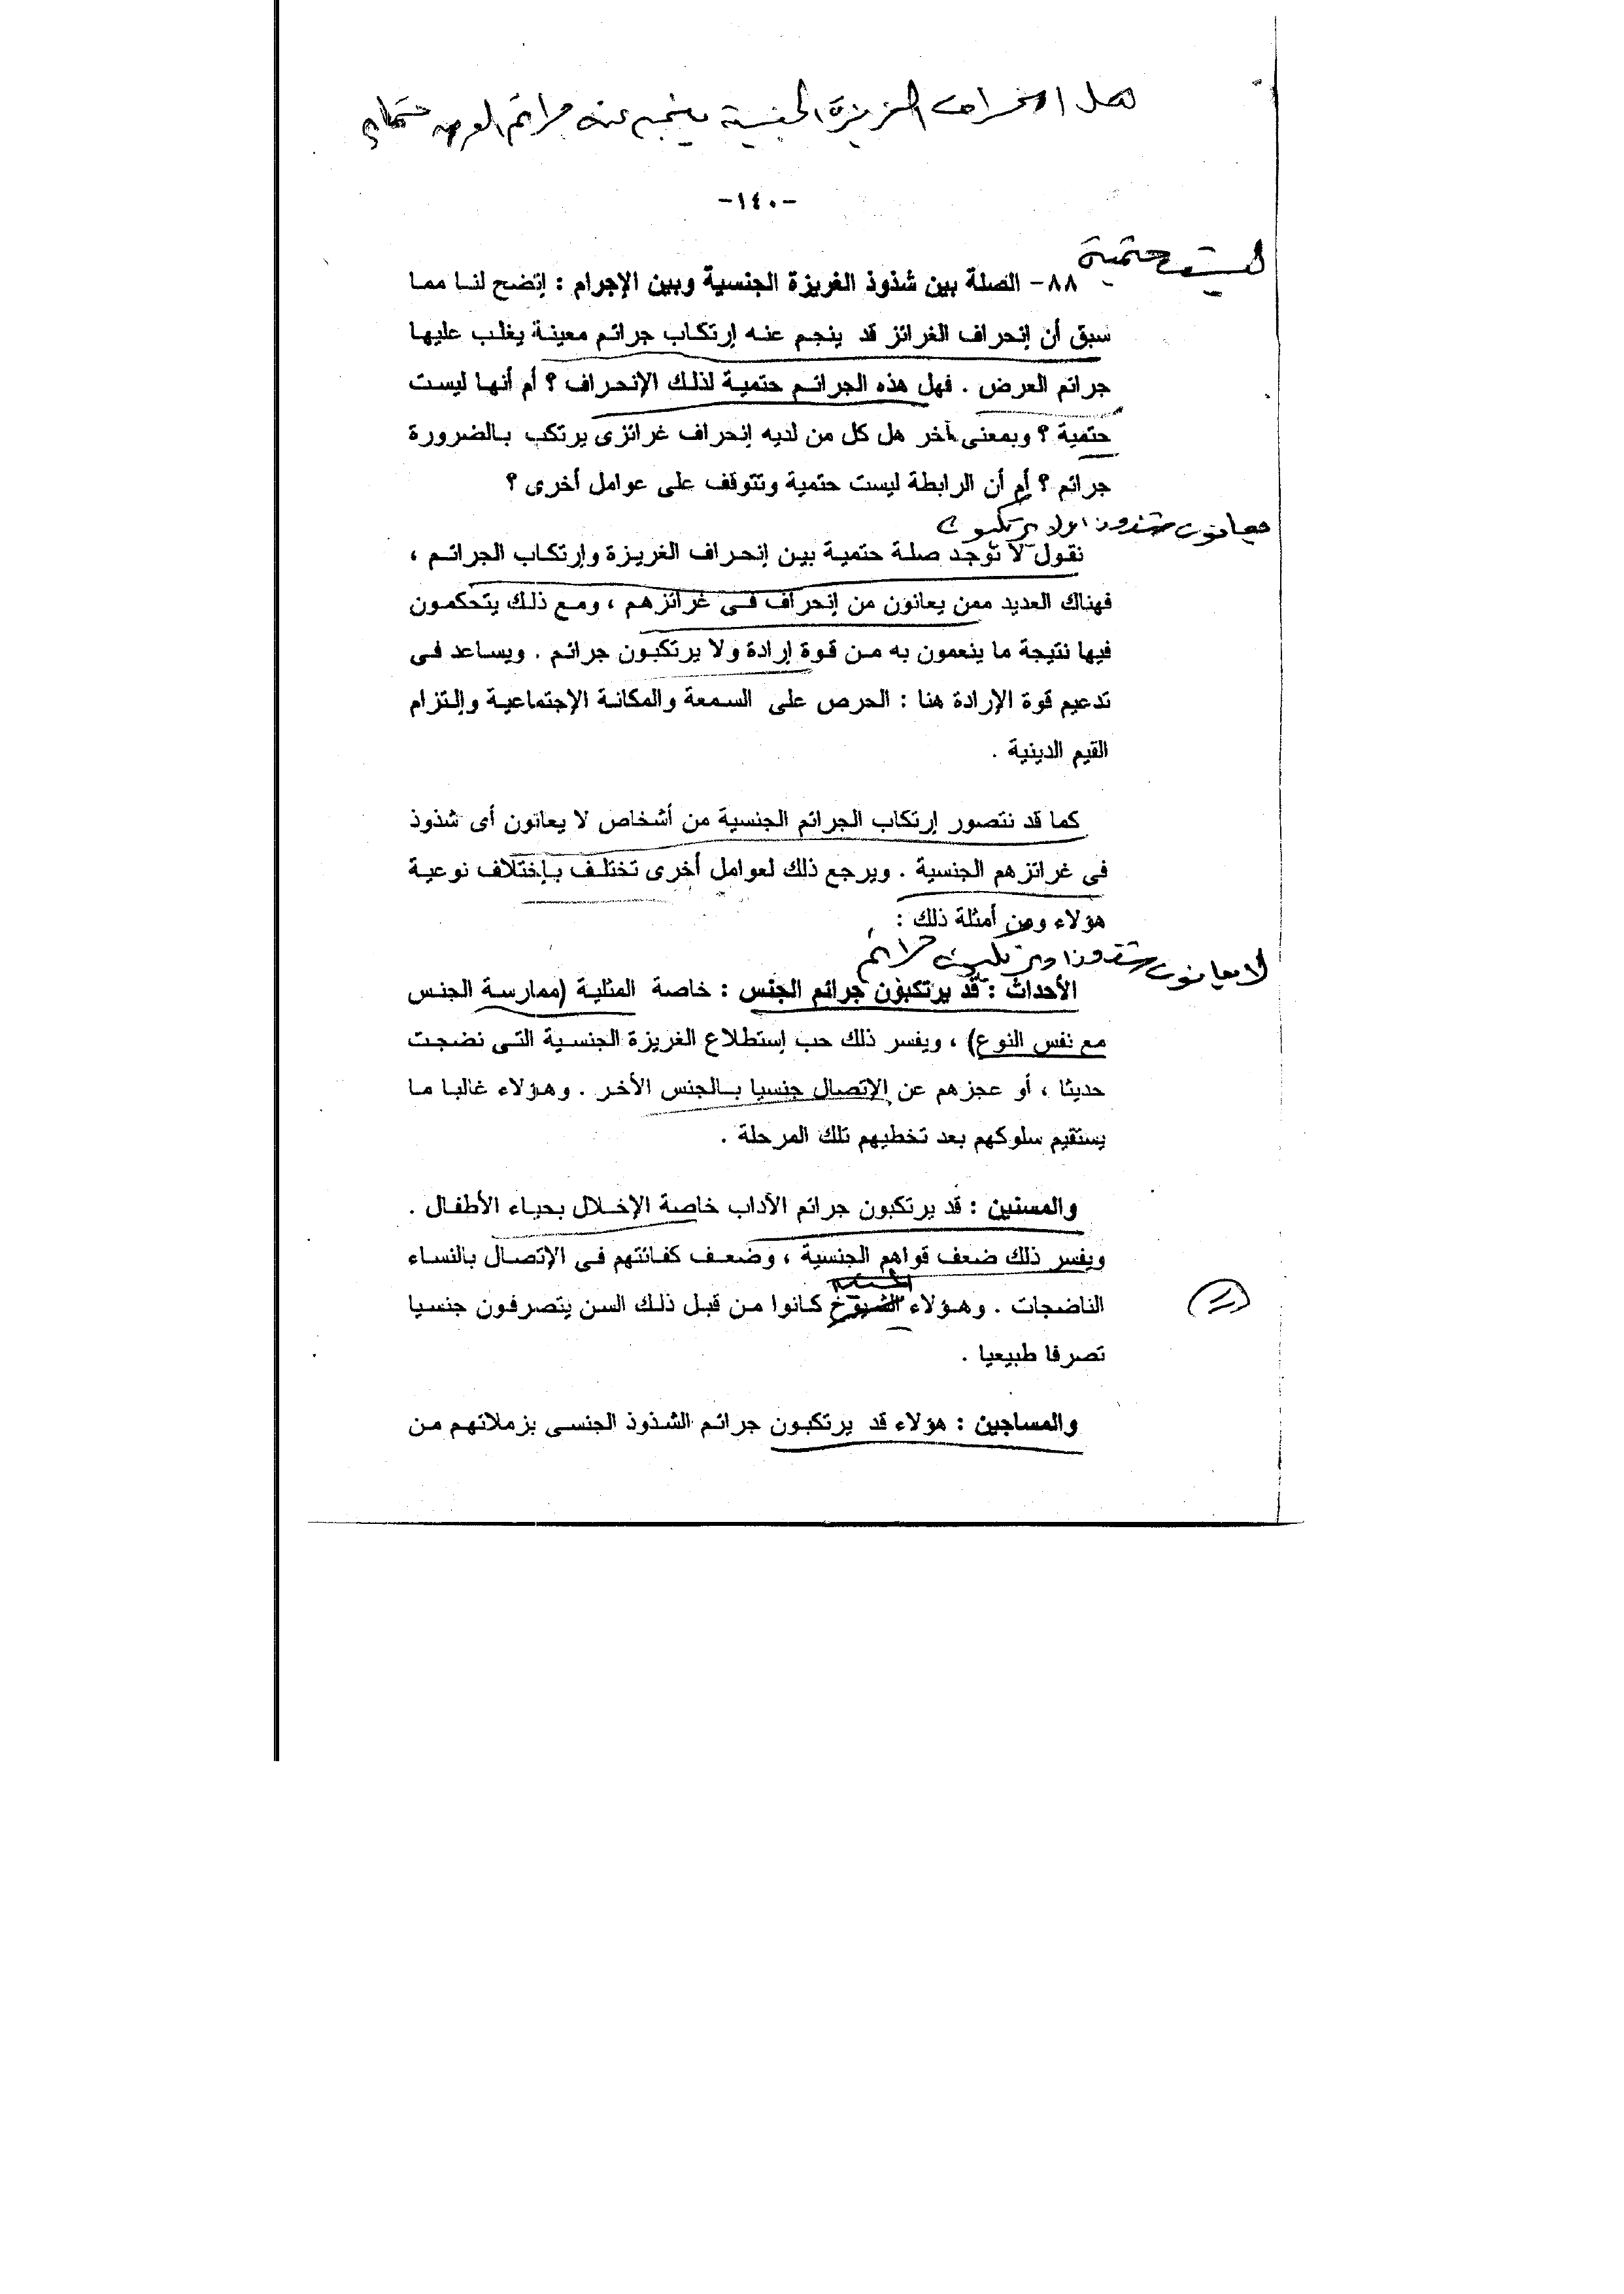 هل انحراف الغريزة الجنسية ينجم عنه جرائم العرض حتما؟
-١٤٠-
ليست حتمية
٨٨- الصلة بين شذوذ الغريزة الجنسية وبين الإجرام : إتضح لنا مما
سبق أن إنحراف الغرائز قد ينجم عنه إرتكاب جرائم معينة يغلب عليها
جرائم العرض . فهل هذه الجرائم حتمية لذلك الإنحراف ؟ أم أنها ليست
حتمية ؟ وبمعنى آخر هل كل من لديه إنحراف غرائزى يرتكب بالضرورة
جرائم ؟ أم أن الرابطة ليست حتمية وتتوقف على عوامل أخرى ؟
يعانون شذوذا ولا يرتكبون
نقول لا توجد صلة حتمية بين إنحراف الغريزة وإرتكاب الجرائم ،
فهناك العديد ممن يعانون من إنحراف فى غرائزهم ، ومع ذلك يتحكمون
فيها نتيجة ما ينعمون به من قوة إرادة ولا يرتكبون جرائم . ويساعد فى
تدعيم قوة الإرادة هنا : الحرص على السمعة والمكانة الإجتماعية وإلتزام
القيم الدينية .
كما قد نتصور إرتكاب الجرائم الجنسية من أشخاص لا يعانون أى شذوذ
فى غرائزهم الجنسية . ويرجع ذلك لعوامل أخرى تختلف بإختلاف نوعية
هؤلاء ومن أمثلة ذلك :
لا يعانون شذوذا ويرتكبون جرائم
الأحداث : قد يرتكبون جرائم الجنس : خاصة المثلية (ممارسة الجنس
مع نفس النوع) ، ويفسر ذلك حب إستطلاع الغريزة الجنسية التى نضجت
حديثا ، أو عجزهم عن الإتصال جنسيا بالجنس الأخر . وهؤلاء غالبا ما
يستقيم سلوكهم بعد تخطيهم تلك المرحلة .
والمسنين : قد يرتكبون جرائم الآداب خاصة الإخلال بحياء الأطفال .
ويفسر ذلك ضعف قواهم الجنسية ، وضعف كفائتهم فى الإتصال بالنساء
الناضجات . وهؤلاء الشيوخ كانوا من قبل ذلك السن يتصرفون جنسيا
تصرفا طبيعيا .
والمساجين : هؤلاء قد يرتكبون جرائم الشذوذ الجنسى بزملائهم من